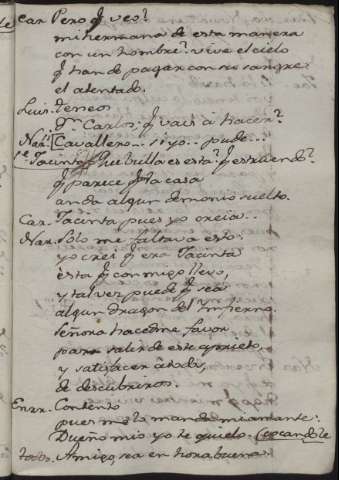 Car. Pero q̃ veo?
mi hermana de esta manera
con un hombre? vive el cielo
q̃ han de pagar con su sangre
el atentado.
Luis. teneos
Dn. Carlos; q̃ vais á hacer?
Nar. Cavallero... si yo.. pude...
Jacinta. Que bulla es esta? q̃ estruendo?
q̃ parece q̃ la casa
anda algun demonio suelto.
Car. Jacinta pues yo creia...
Nar. Solo me faltava esto:
yo crei q̃ era Jacinta
esta q̃ conmigo llevo,
y tal vez puede q̃ sea
algun dragon del Infierno.
Señora hacedme favor
para salir de este aprieto,
y satisfacer á todos,
de descubriros.
Enrr. Contento
pues me lo manda mi amante:
Dueño mio yo te quielo. (tocandole
todos. Amigo, sea en hora buena